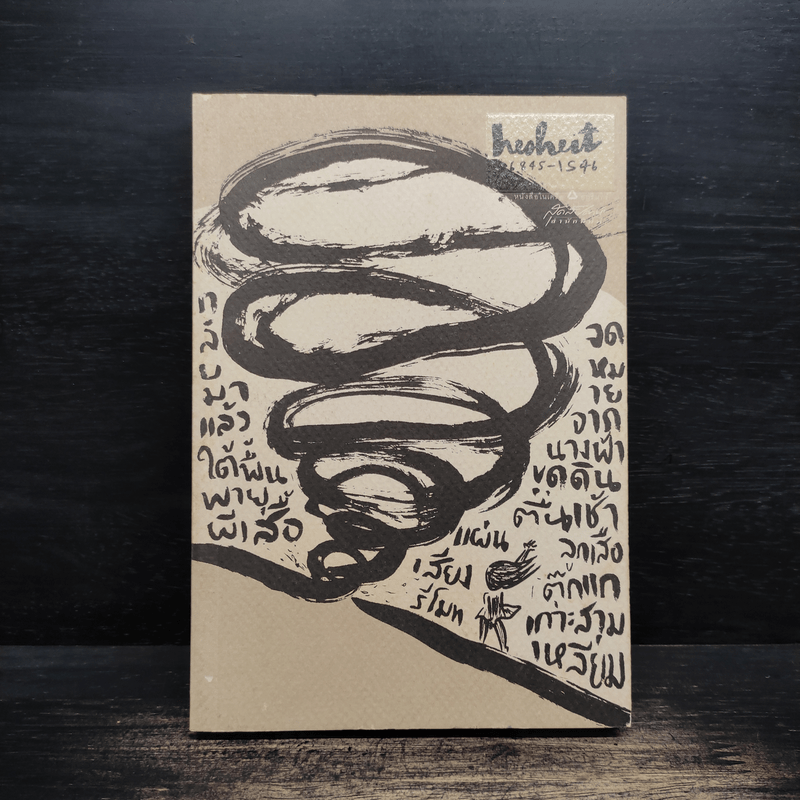 heoheit
6845-1546
หนังสือในเครือ
จด
หม
าย
จาก
นางฟ้า
ขุดดิน
ตื่นเช้า
ลูกเสือ
ตุ๊กแก
เกาะสาม
เหลี่ยม
แผ่น
เสียง
รีโมท
แล้ง
ใต้พื้น
พายุ
ผีเสื้อ